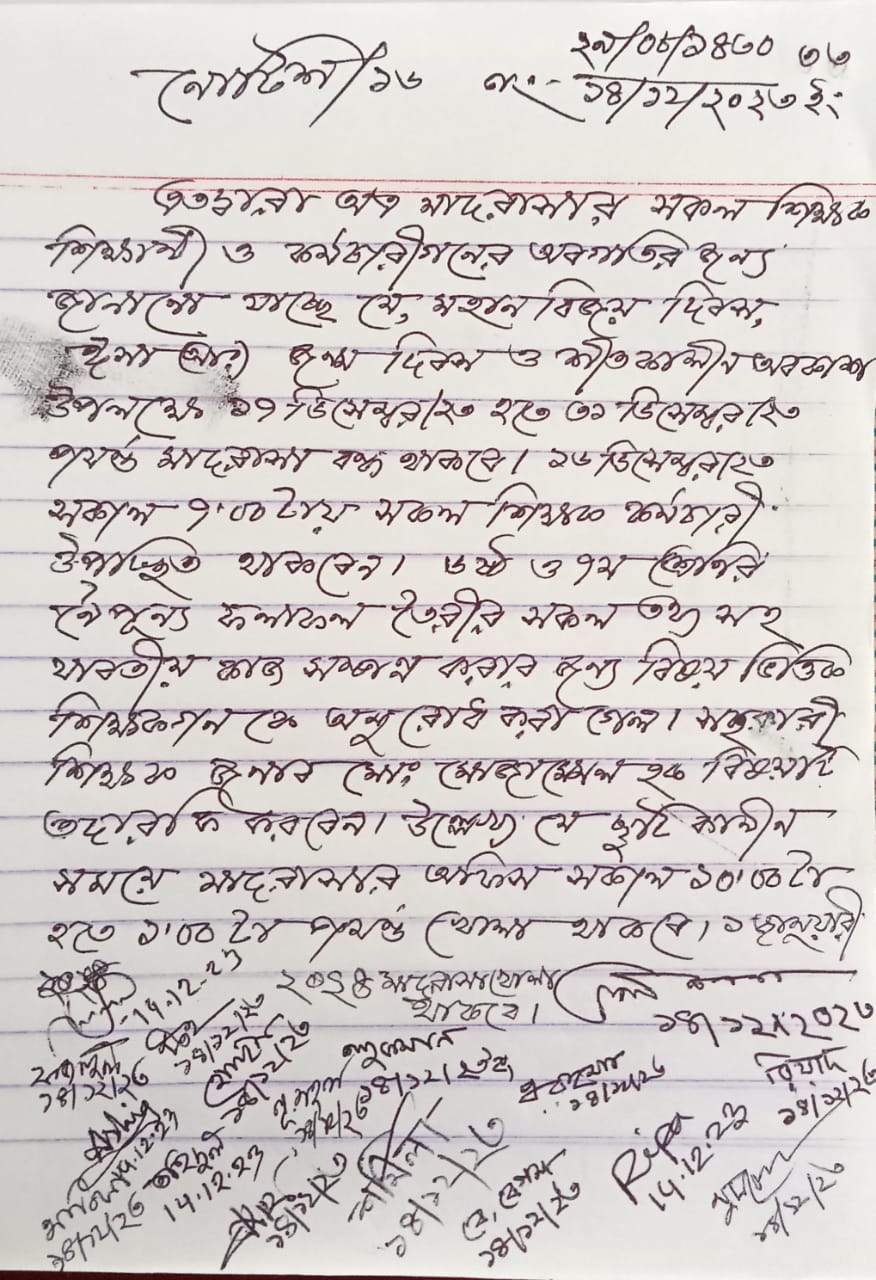 নোটিশ/১৬ তাং:- ২৯/০৮/১৪৩০ ৩৩
১৪/১২/২০২৩ ইং
এতদ্বারা অত্র মাদরাসার সকল শিক্ষক
শিক্ষার্থী ও কর্মচারীগনের অবগতির জন্য
জানানো যাচ্ছে যে, মহান বিজয় দিবস,
ঈসা (আ:) জন্ম দিবস ও শীতকালীন অবকাশ
উপলক্ষে ১৭ ডিসেম্বর/২৩ হতে ৩১ ডিসেম্বর/২৩
পযর্ন্ত মাদরাসা বন্ধ থাকবে। ১৬ ডিসেম্বর/২৩
সকাল ৭.০০ টায় সকল শিক্ষক কর্মচারী
উপস্থিত থাকবেন। ৬ষ্ঠ ও ৭ম শ্রেণির
নৈপুন্য ফলাফল তৈরীর সকল তথ্য সহ
যাবতীয় কাজ সম্পন্ন করার জন্য বিষয় ভিত্তিক
শিক্ষকগন কে অনুরোধ করা গেল। সহকারী
শিক্ষক জনাব মো: মোজাম্মেল হক বিষয়টি
তদারকি করবেন। উল্লেখ্য যে ছুটি কালীন
সময়ে মাদরাসার অফিস সকাল ১০.০০ টা
হতে ১.০০ টা পযর্ন্ত খোলা থাকবে। ১ জানুয়ারী
২০২৪ মাদরাসা খোলা
থাকবে।
১৪/১২/২০২৩
14.12.23
১৪/১২/২৩
১৪/১২/২৩
১৪/১২/২৩
১৪/১২/২৩
১৪/১২/২৩
১৪/১২/২৩
রিয়াদ
১৪/১২/২৩
14.12.23
14.12.23
১৪/১২/২৩
১৪/১২/২৩
শর্মিলা
১৪/১২/২৩
রে, বেগম
১৪/১২/২৩
Ripa
14.12.23
১৪/১২/২৩